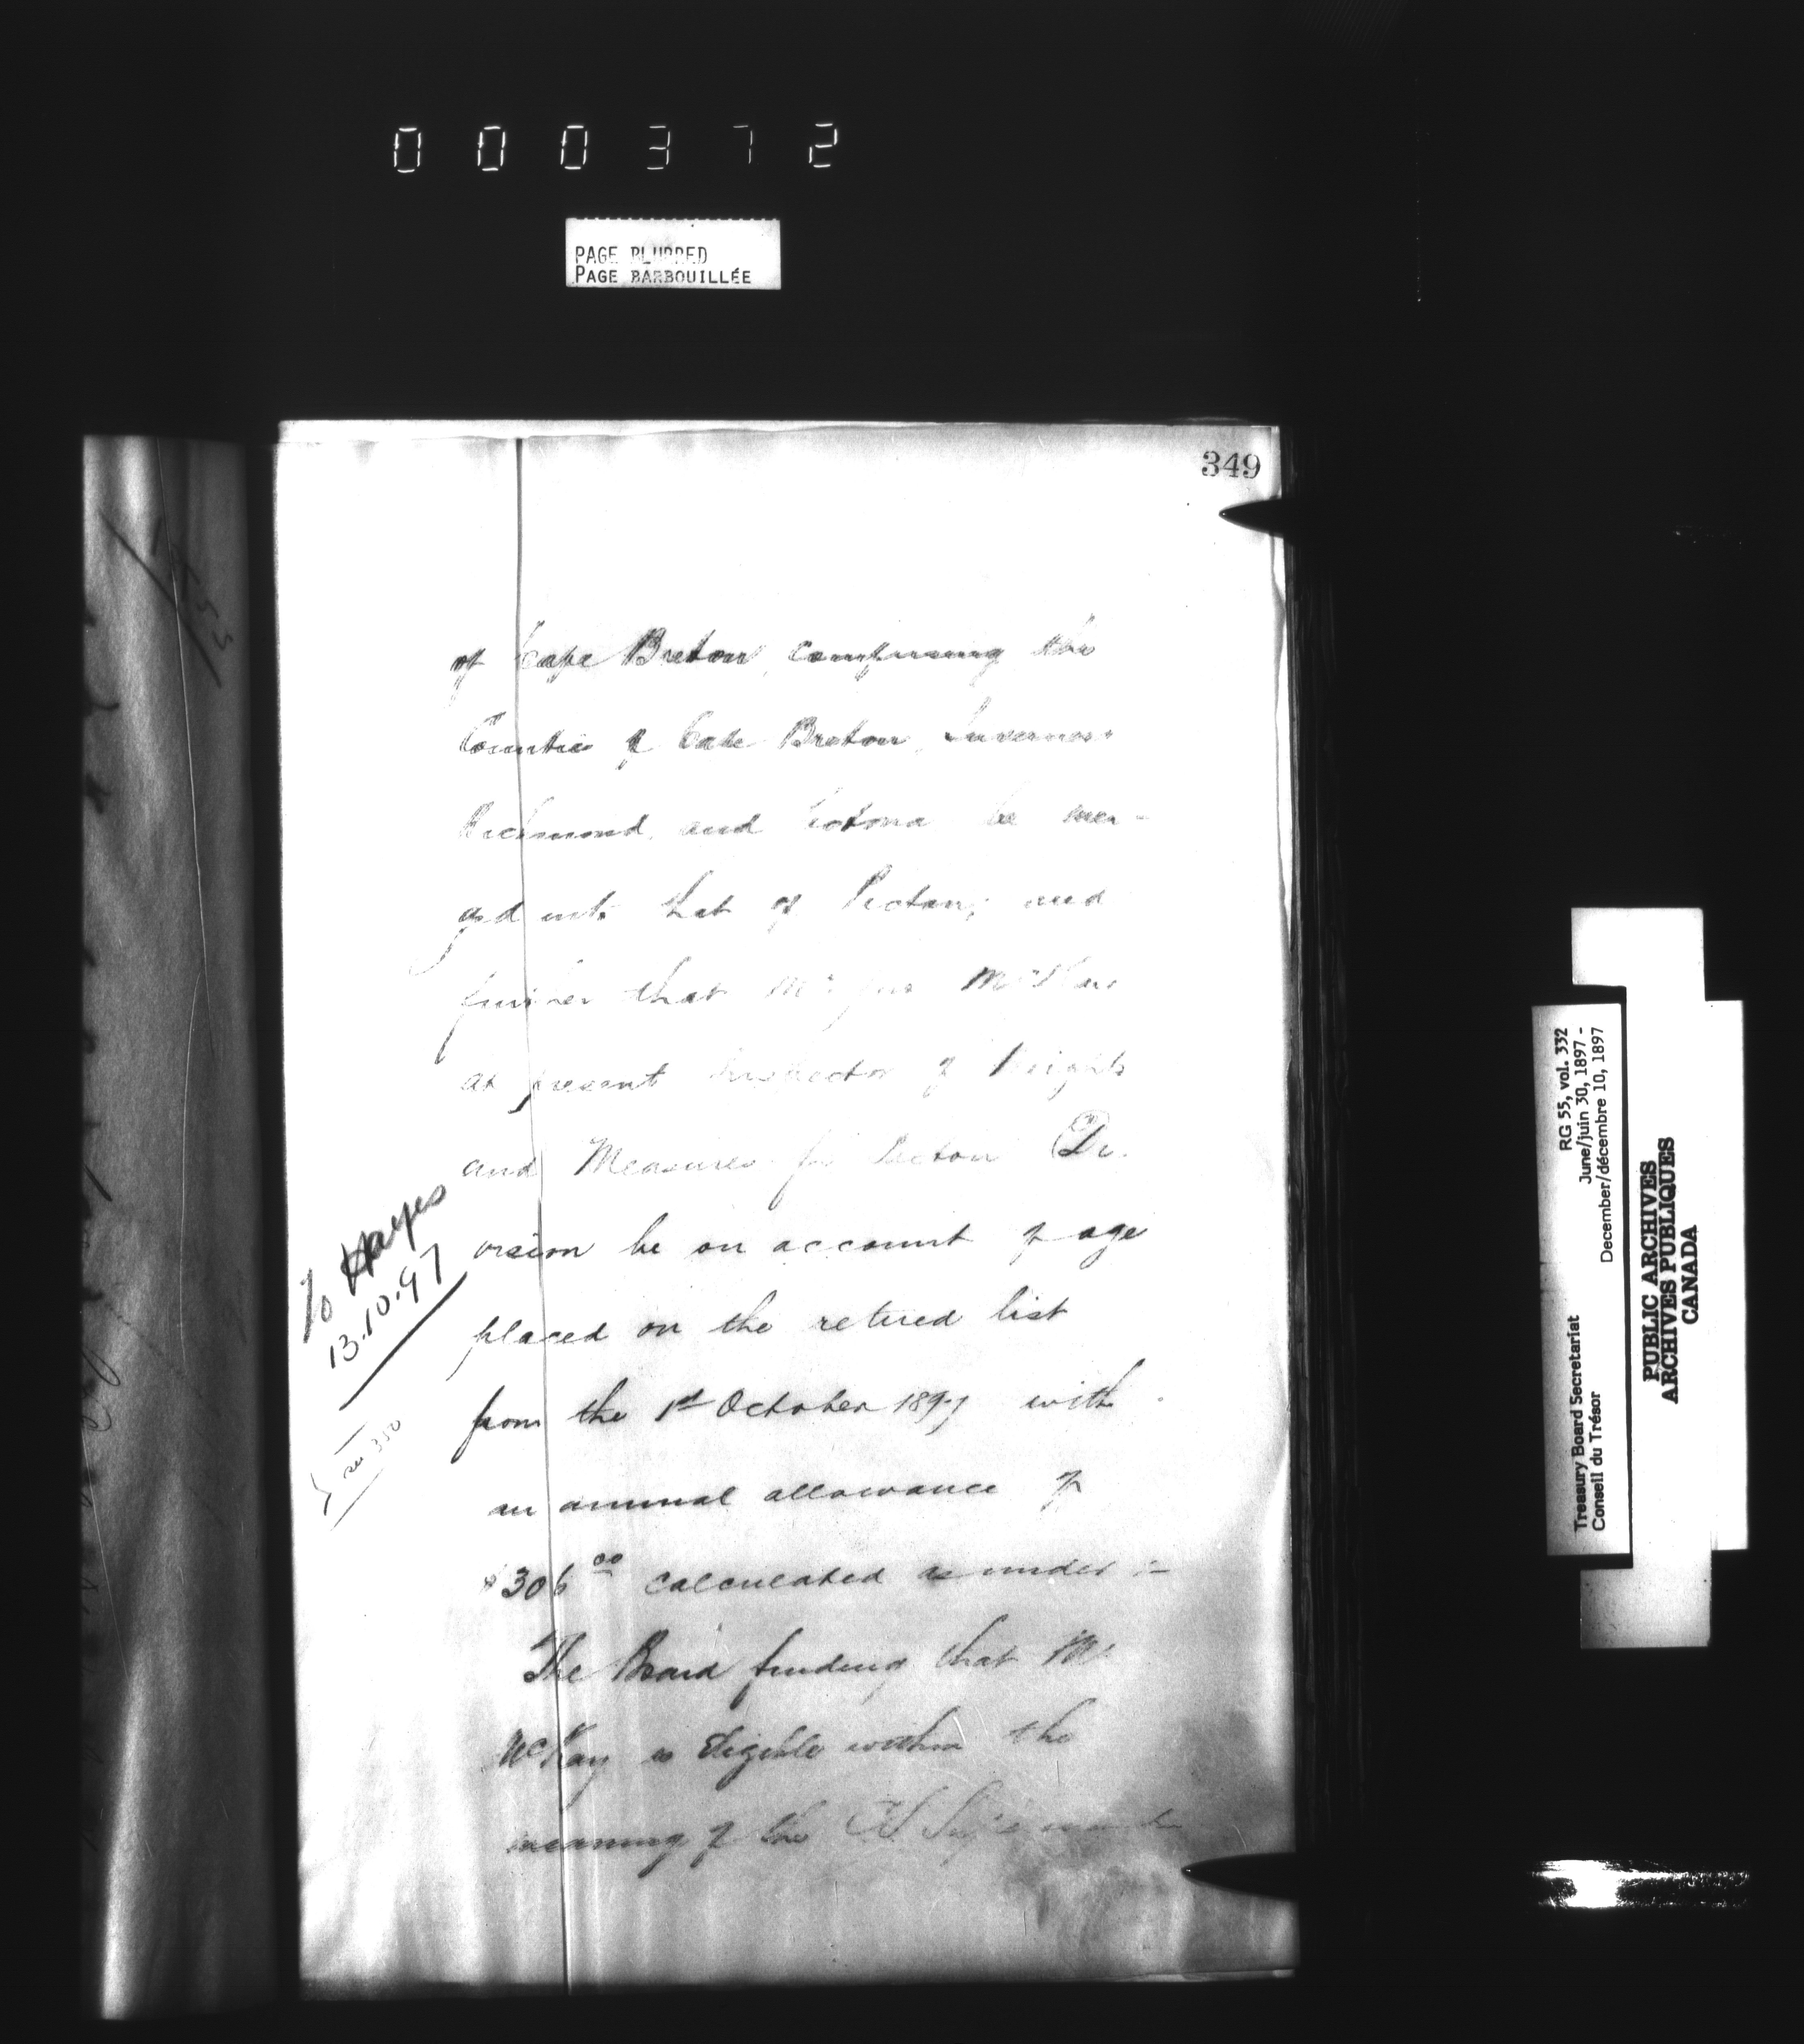 000372
PAGE BLURRED
PAGE BARBOUILLÉE
349
of Cape Breton, comprising the
Counties of Cape Breton, Inverness
Richmond and Victoria be mer-
ged into that of Pictou; and
further that Mr McKay
at present Inspector of Weights
and Measures for Pictou Di-
vision be on account of age
placed on the retired list
from the 1st October 1897 with
an annual allowance of
$306 00 calculated as under :-
The Board finding that Mr
McKay is eligible within the
meaning of the
To Hayes
13.10.97
see 350
RG 55, vol. 332
June/juin 30, 1897 -
December/décembre 10, 1897
Treasury Board Secretariat
Conseil du Trésor
PUBLIC ARCHIVES
ARCHIVES PUBLIQUES
CANADA